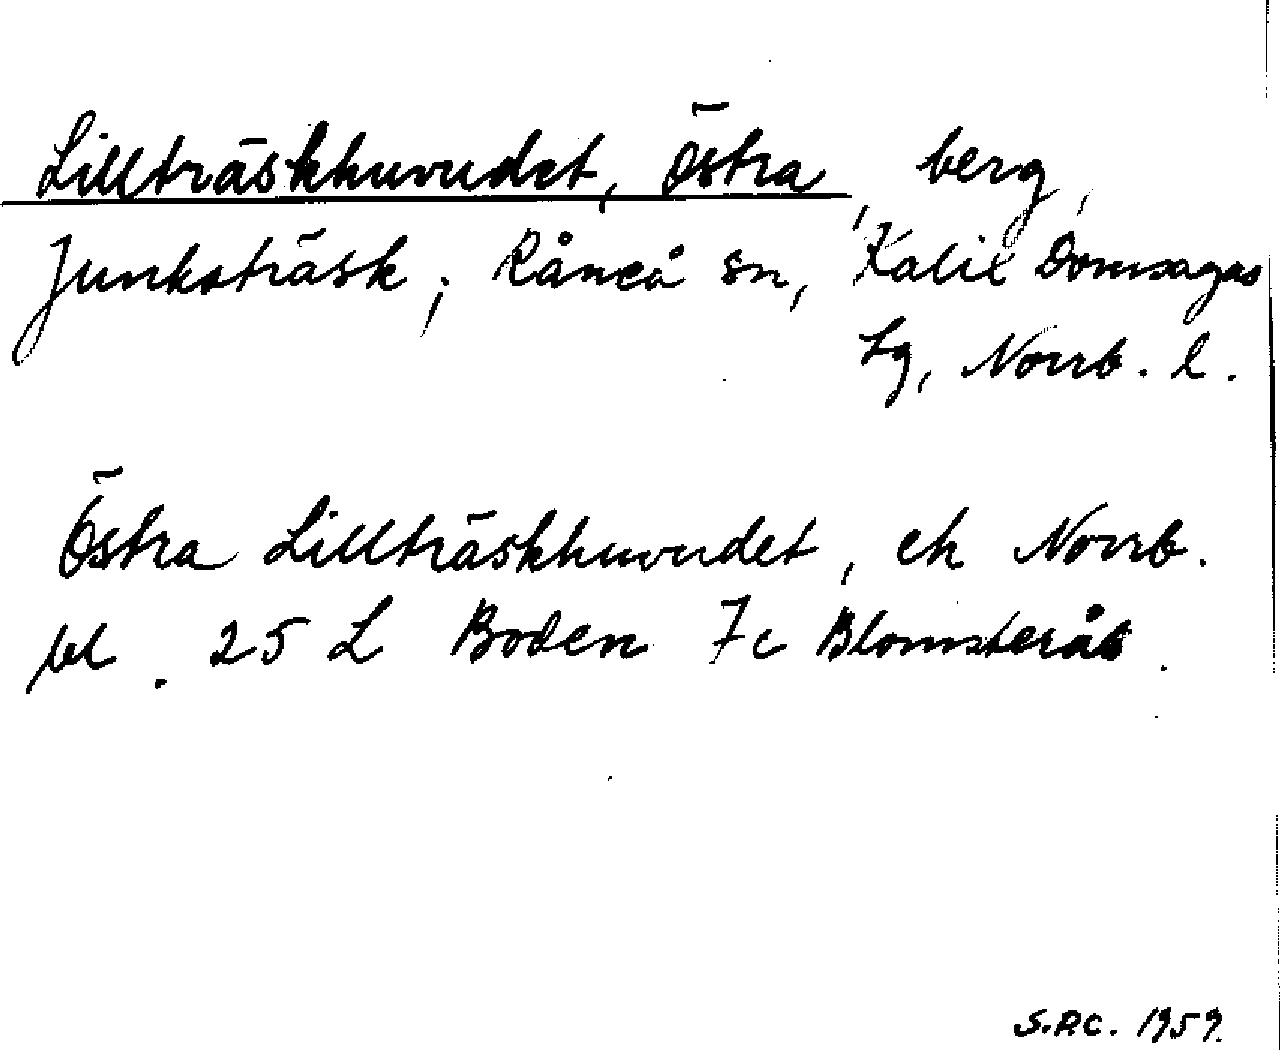 Lillträskhuvudet, Östra, berg,
Junksträsk, Råneå sn, Kalix Domsagas
tg, Norrb. l.
Östra Lillträskhuvudet, ek Norrb.
bl. 25 L Boden 7c Blomsterås.
S.P.C. 1959.